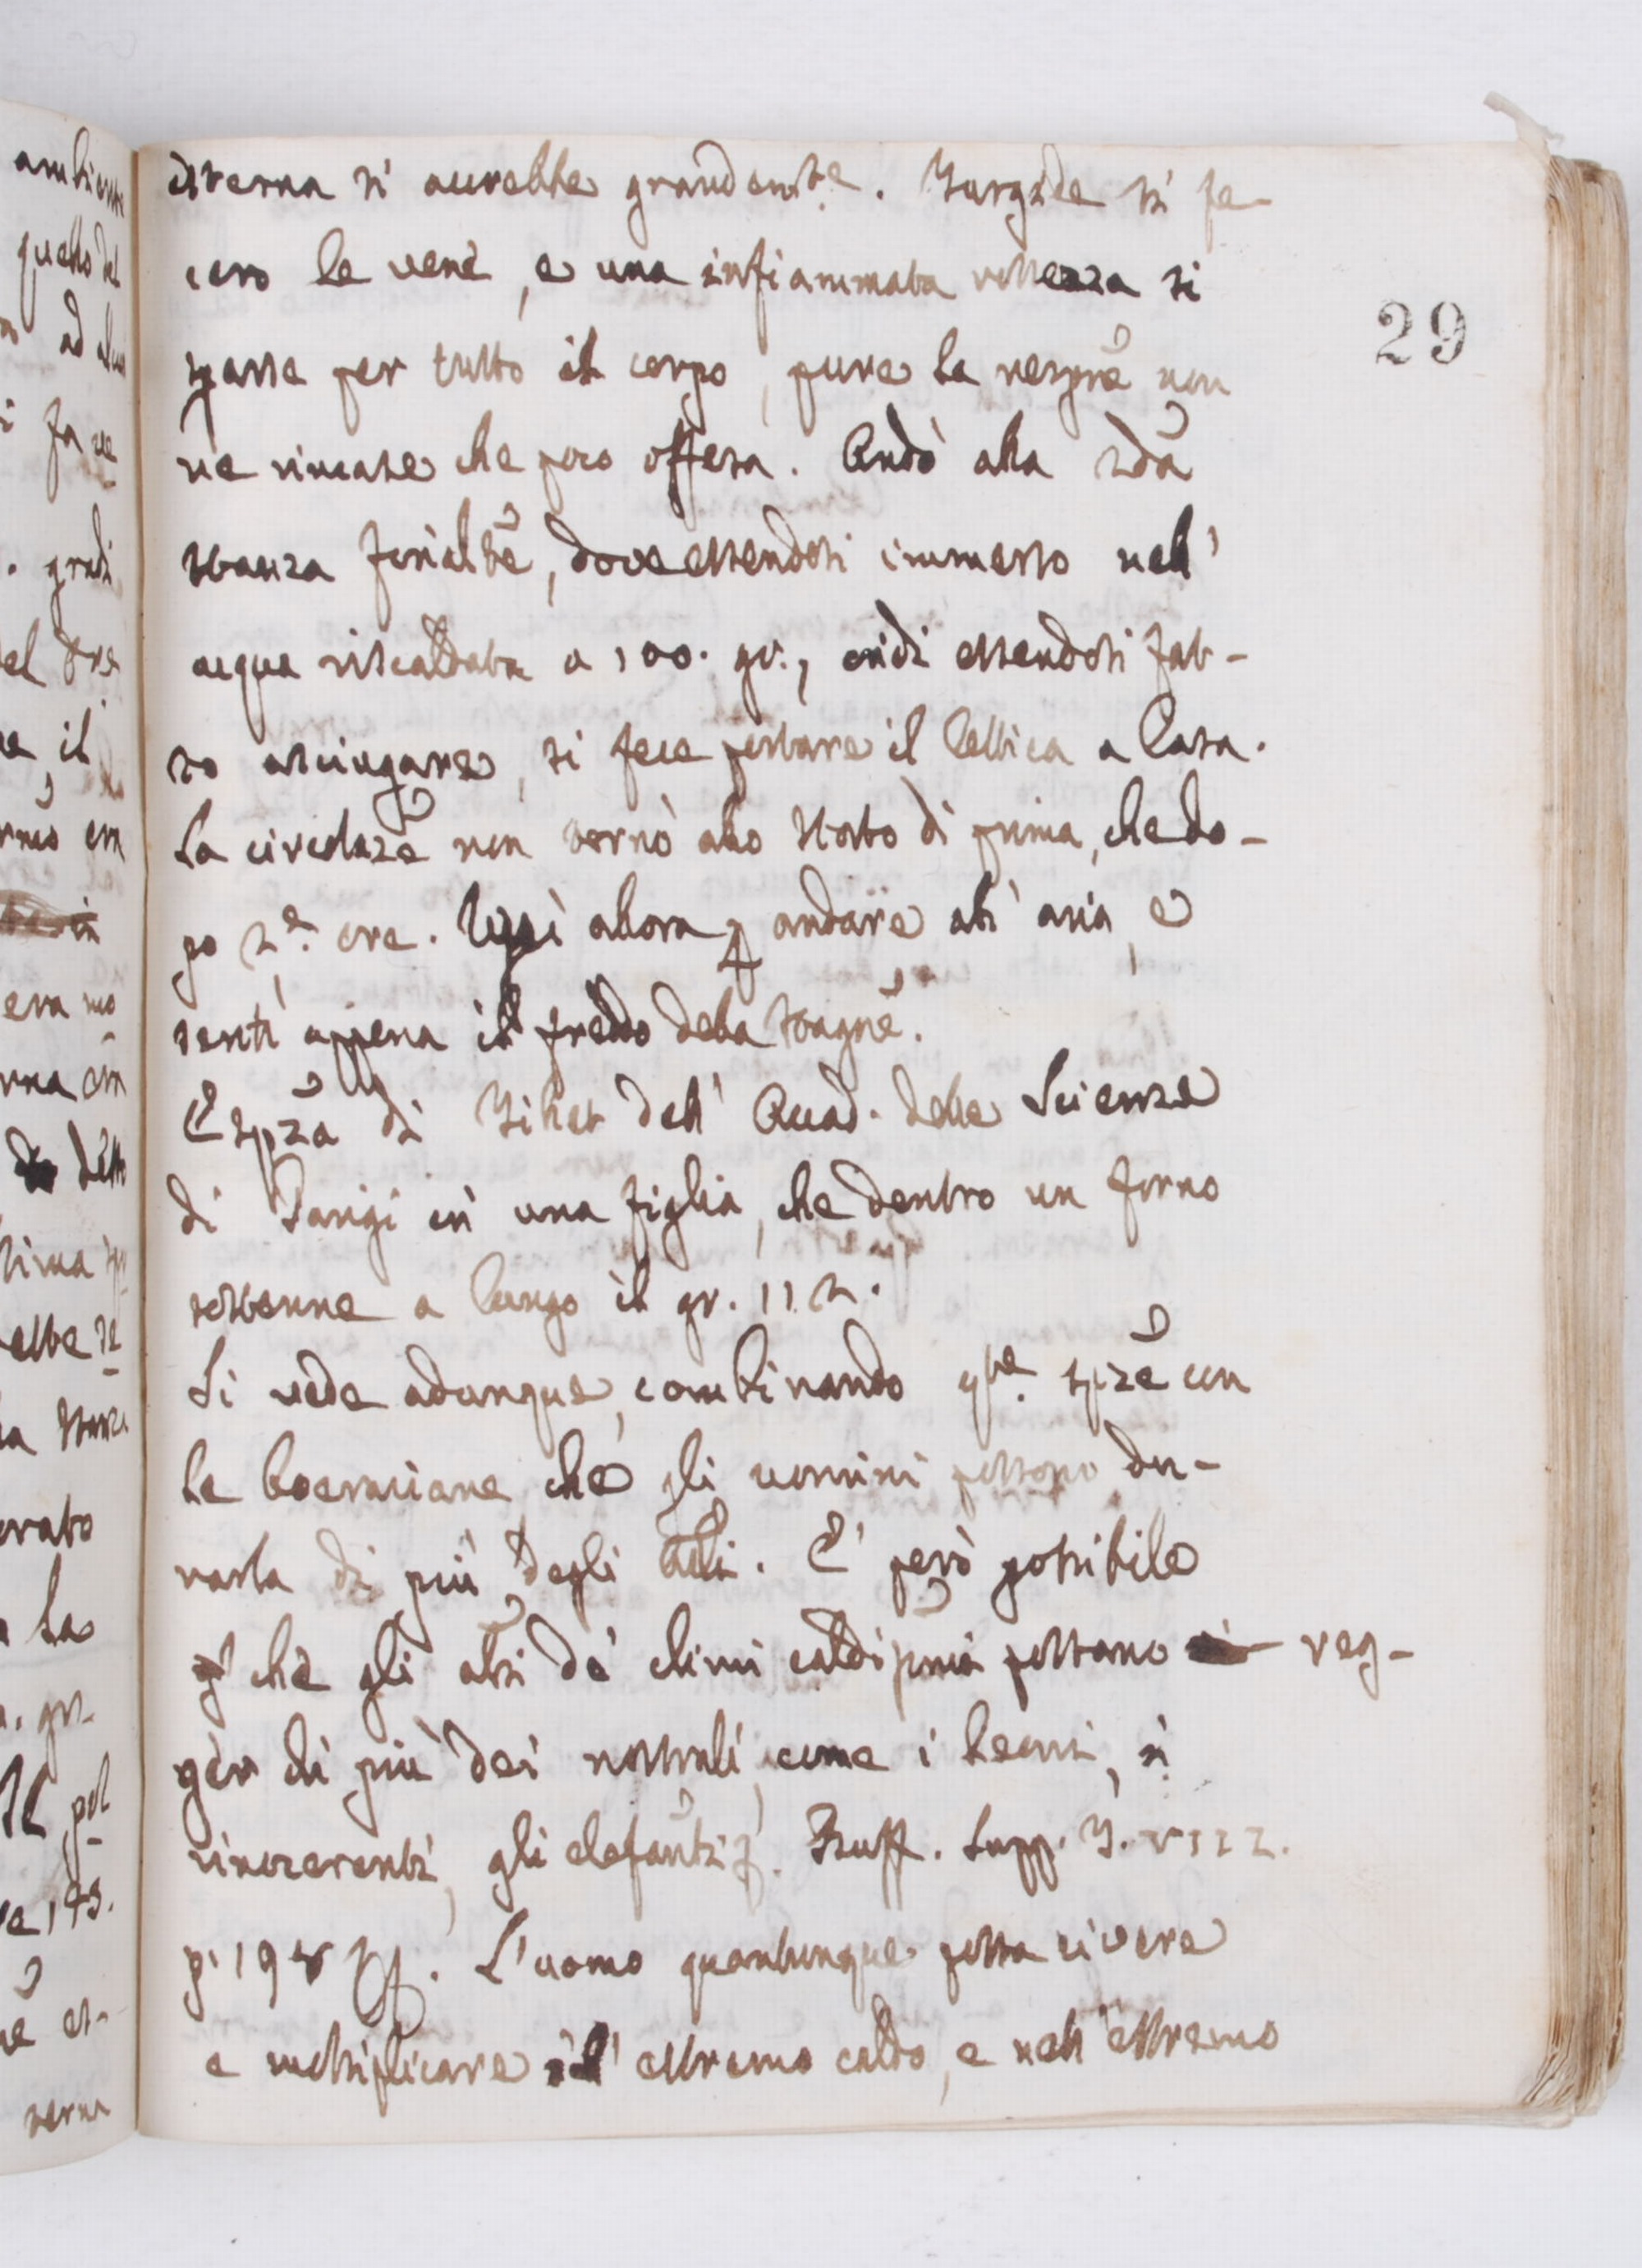 esterna si accrebbe grandem.te. Turgide si fe-
cero le vene, e una infiammata rossezza si
sparse per tutto il corpo, pure la respire non
29
ne rimase che poco offesa. Andò alla 2da
stanza finalte, dove essendosi immerso nell'
acqua riscaldata a 100. gr., indi essendosi fat-
to asciugare, si fece portare il lettica a Casa.
La circolaze non tornò allo stato di prima, che do-
po 2.e ore. Uscì allora p andare all' aria, e
sentì appena il freddo della stagne.
Espza di Tillet dell' Accad. delle Scienze
di Parigi in una figlia, che dentro un forno
sostenne a lungo il gr. 112.
Si vede adunque, combinando q.te spze con
le Boeraviane che gli uomini possono du-
rarla di più degli alti. E' però possibile
che gli ali de' climi caldi possano reg-
ger di più dei nostrali, come i Leoni, i
rinoceronti, gli elefanti. Buff. Supp. T. VIII.
p. 194 sg. L'uomo quantunque possa vivere
e moltiplicare nell' estremo caldo, e nell' estremo